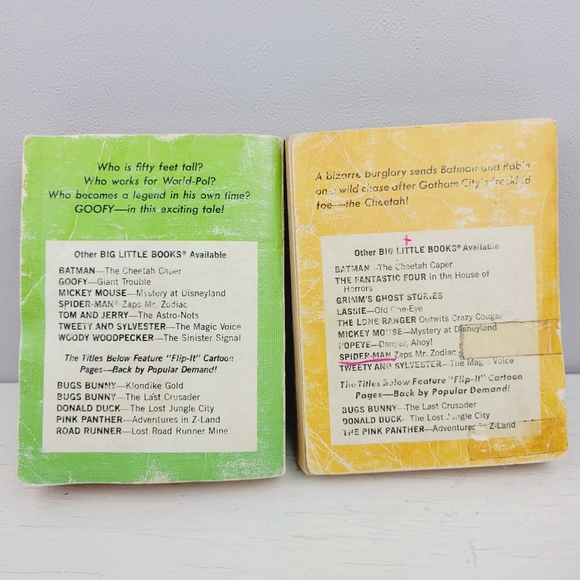 Who is fifty feet tall?
Who works for World-Pol?
Who becomes a legend in his own time?
GOOFY—in this exciting tale!
Other BIG LITTLE BOOKS® Available
BATMAN—The Cheetah Caper
GOOFY—Giant Trouble
MICKEY MOUSE—Mystery at Disneyland
SPIDER-MAN Zaps Mr. Zodiac
TOM AND JERRY—The Astro-Nots
TWEETY AND SYLVESTER—The Magic Voice
WOODY WOODPECKER—The Sinister Signal
The Titles Below Feature "Flip-It" Cartoon
Pages—Back by Popular Demand!
BUGS BUNNY—Klondike Gold
BUGS BUNNY—The Last Crusader
DONALD DUCK—The Lost Jungle City
PINK PANTHER—Adventures in Z-Land
ROAD RUNNER—Lost Road Runner Mine
A bizarre burglary sends Batman and Robin
on a wild chase after Gotham City's freckled
foe—the Cheetah!
Other BIG LITTLE BOOKS® Available
BATMAN—The Cheetah Caper
THE FANTASTIC FOUR in the House of
Horrors
GRIMM'S GHOST STORIES
LASSIE—Old One-Eye
THE LONE RANGER Outwits Crazy Cougar
MICKEY MOUSE—Mystery at Disneyland
POPEYE—Danger, Ahoy!
SPIDER-MAN Zaps Mr. Zodiac
TWEETY AND SYLVESTER—The Magic Voice
The Titles Below Feature "Flip-It" Cartoon
Pages—Back by Popular Demand!
BUGS BUNNY—The Last Crusader
DONALD DUCK—The Lost Jungle City
THE PINK PANTHER—Adventures in Z-Land